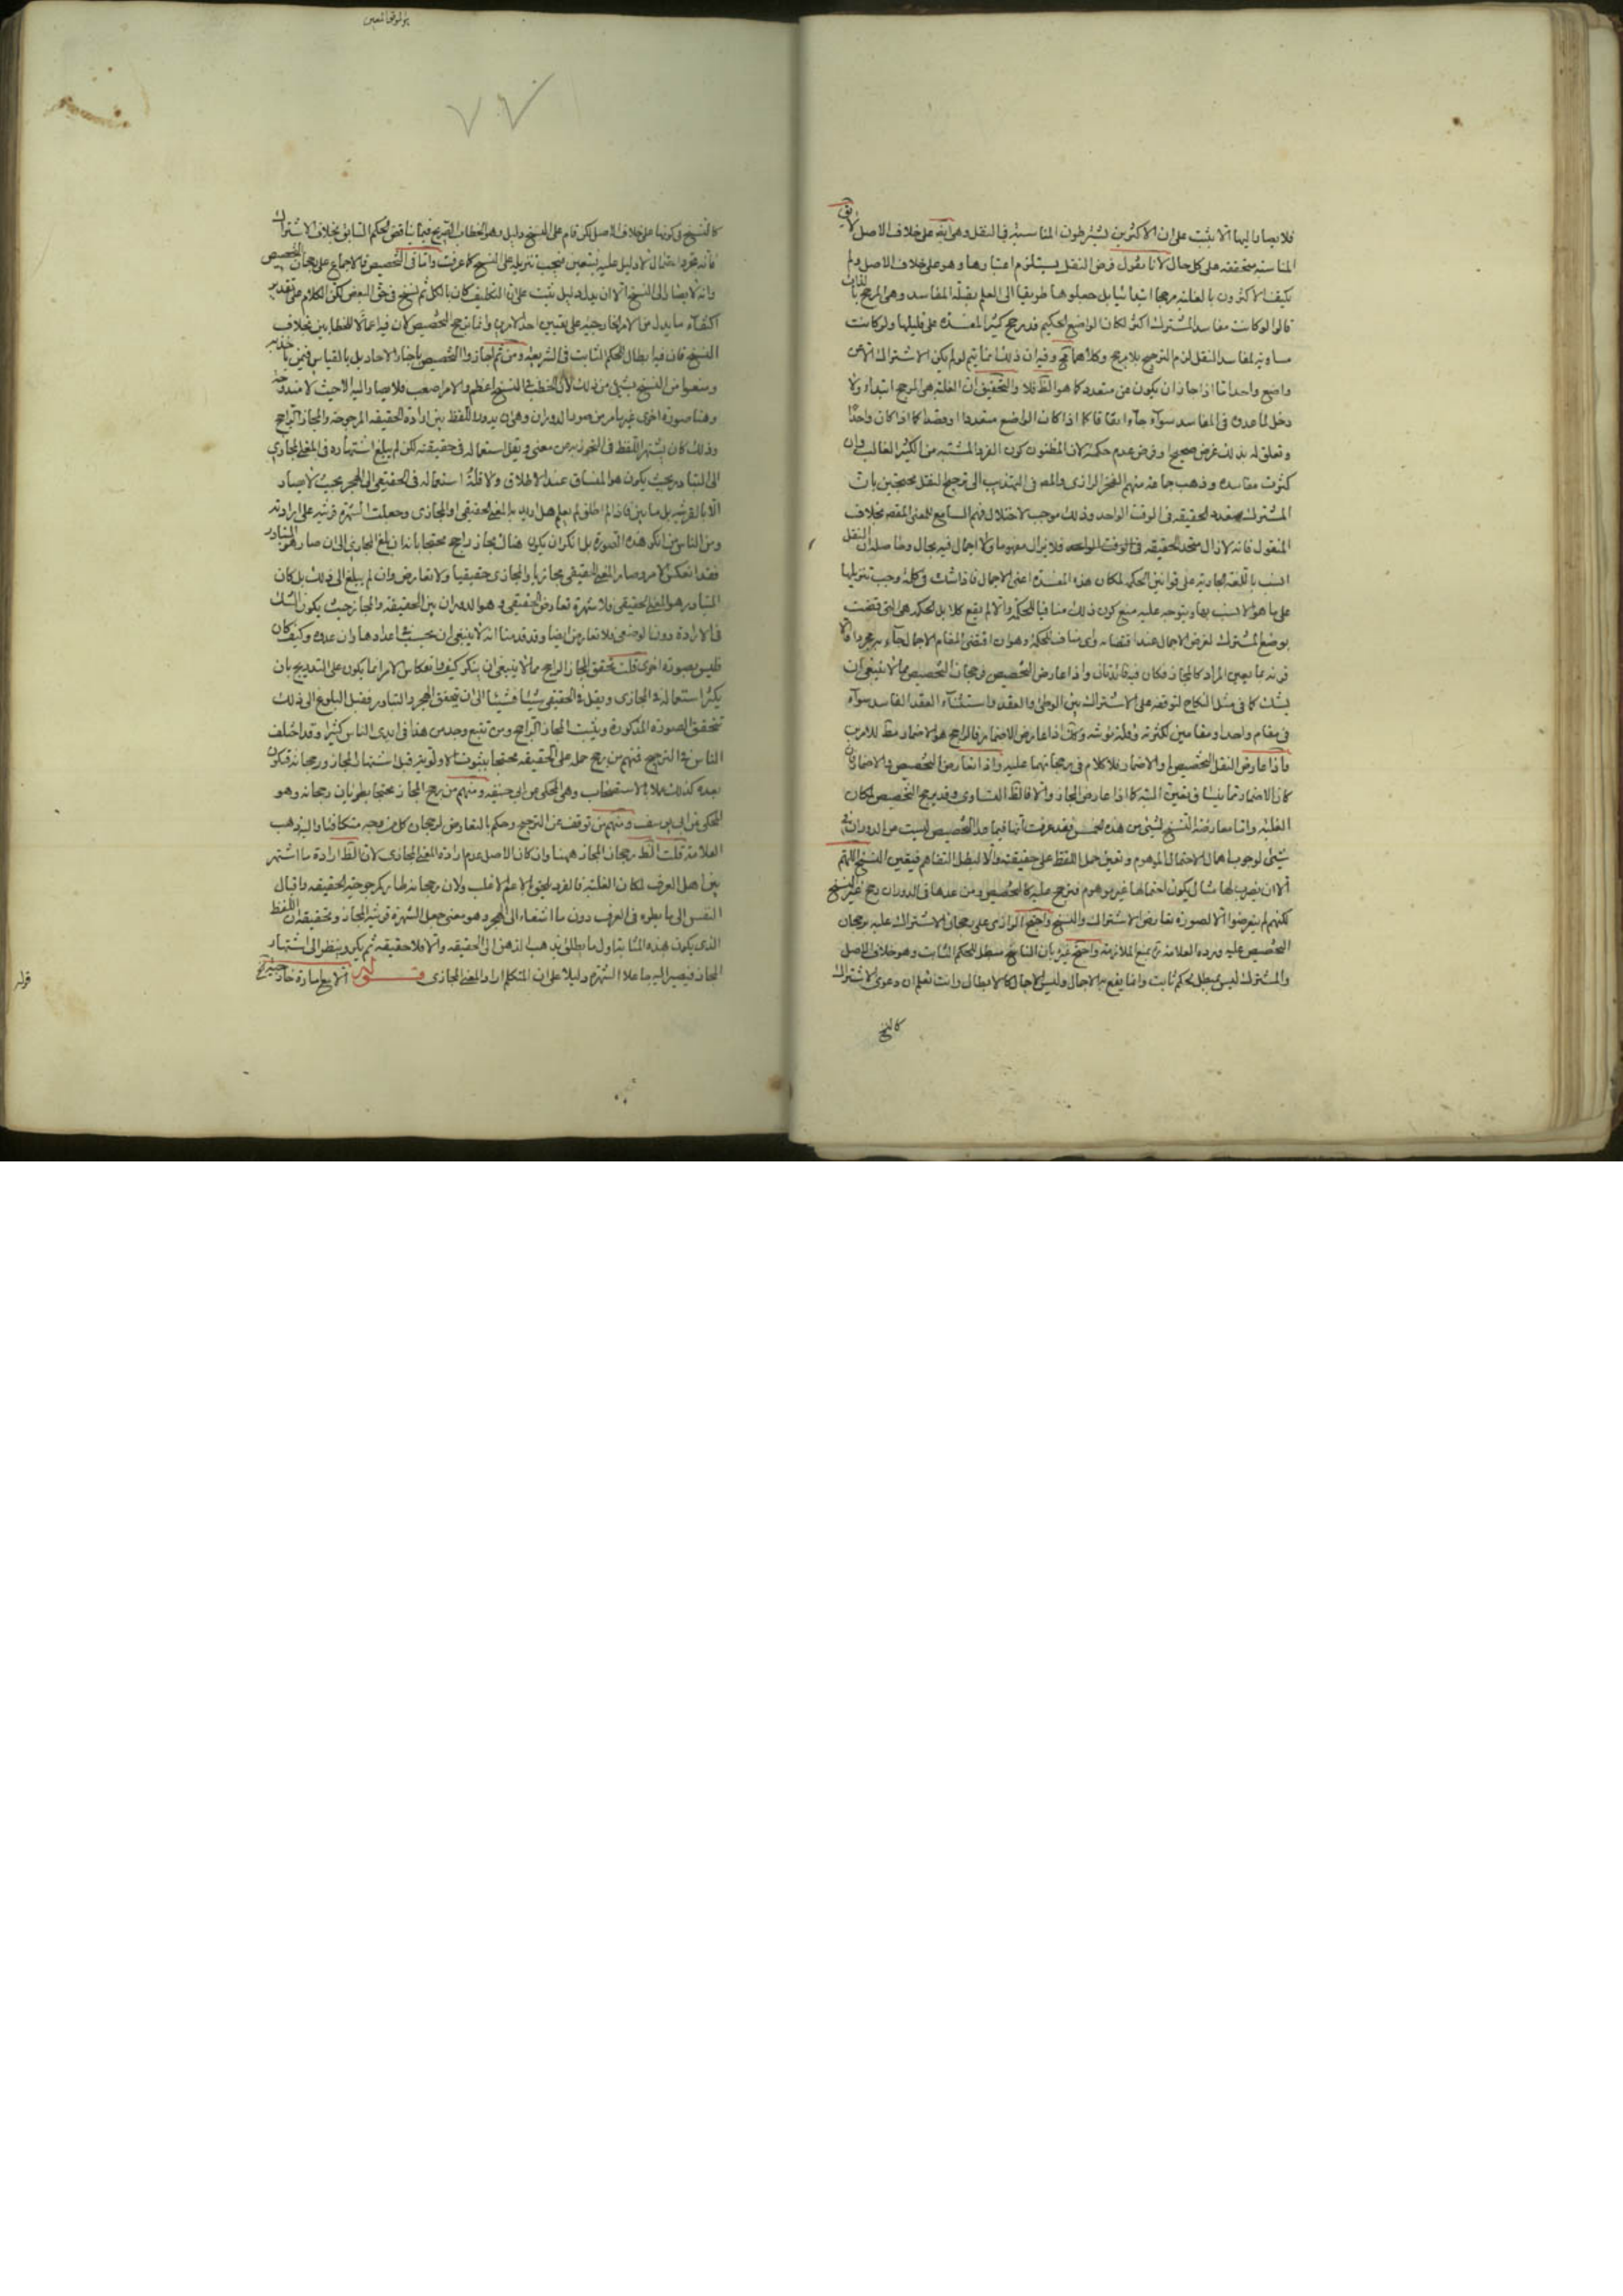 فلا يصار اليها الا بثبت على ان الاكثرين يشترطون المناسبة في النقل وهي ايضا على خلاف الاصل لا يق
المناسبة متحققة على كل حال لانا نقول فرض النقل يستلزم اعتبارها وهو على خلاف الاصل ولم
يكيف الاكثرون بالغلبة مرجحا ابتدائيا بل جعلوها طريقا الى العلم بقلة المفاسد وهي المرجح بالذات
قالوا لو كانت مفاسد المشترك اكثر لكان الواضع الحكيم قد رجح كثير المفسدة على قليلها ولو كانت
مساوية لمفاسد النقل لزم الترجيح بلا مرجح وكلاهما مح وفيه ان ذلك انما يتم لو لم يكن الاشتراك الا عن
واضع واحد اما اذا جاز ان يكون عن متعدد كما هو الظ فلا والتحقيق ان الغلبة هي المرجح ابتداء ولا
دخل لما عده في المفاسد سواء جاء اتفاقا كما اذا كان الواضع متعددا او قصدا كما اذا كان واحدا
وتعلق له بذلك غرض صحيح او فرض عدم حكمة لان المظنون كون الفرد المشتبه من الكثير الغالب وان
كثرت مفاسده وذهب جماعة منهم الفخر الرازي والمص في التهذيب الى ترجيح النقل محتجين بان
المشترك متعدد الحقيقة في الوقت الواحد وذلك موجب لاختلال فهم السامع للمعنى المقصود بخلاف
المنقول فانه لا زال متحد الحقيقة في الوقت الواحد فلا يزال مفهوما ولا اجمال فيه بحال وحاصله ان النقل
انسب باللغة الجارية على قوانين الحكمة لمكان هذه المفسدة اعني الاجمال فاذا شك في كلمة وجب تنزيلها
على ما هو الانسب بها ويتوجه عليه منع كون ذلك منافيا للحكمة والا لم يقع كلا بل الحكمة هي التي قضت
بوضع المشترك لغرض الاجمال عند اقتضائه واي مناف للحكمة وهو ان اقتضى المقام الاجمال جاء به مجردا والا
قرنه بما يعين المراد كالمجاز فكان فيه فائدتان واذا عارض التخصيص فرجحان التخصيص مما لا ينبغي ان
يشك كما في مثل النكاح لتوقفه على الاشتراك بين الوطئ والعقد واستثناء العقد الفاسد سواء
في مقام واحد او مقامين لكثرته وقلة مؤنته وكذا اذا عارض الاضمار فالراجح هو الاضمار مط للامرين
واذا عارض النقل التخصيص او الاضمار فلا كلام في رجحانهما عليه واذا تعارض التخصيص والاضمار فان
كان الاضمار مما ينساق تعين اليه كما اذا عارض المجاز والا فالظ التساوي وقد يرجح التخصيص لمكان
الغلبة واما معارضة النسخ لشئ من هذه الخمس فقد عرفت انها فيما عدا التخصيص ليست من الدوران في
شئ لوجوب اهمال الاحتمال الموهوم وتعين حمل اللفظ على حقيقته والا لبطل التفاهم فيتعين النسخ اللهم
الا ان يفرض لها مثال يكون احتمالها غير موهوم فترجح عليه كالتخصيص ومن عدها في الدوران رجح غير النسخ
لكنهم لم يتعرضوا الا لصورة تعارض الاشتراك والنسخ واحتج الرازي على رجحان الاشتراك عليه برجحان
التخصيص عليه ورده العلامة ره بمنع الملازمة واحتج غيره بان الناسخ مبطل للحكم الثابت وهو خلاف الاصل
والمشترك ليس بمبطل لحكم ثابت وانما يقع به الاجمال وليس الاجمال كالابطال وانت تعلم ان دعوى الاشتراك
كالنسخ
كالنسخ في كونها على خلاف الاصل لكن قام على النسخ دليل وهو الخطاب الصريح فيما يناقض الحكم السابق بخلاف الاشتراك
فانه مجرد احتمال لا دليل عليه يتعين فيجب تنزيله على النسخ كما عرفت واما في التخصيص فالاجماع على رجحان التخصيص
وانه لا يصار الى النسخ الا ان يدل دليل بثبت على ان التكليف كان بالكل ثم نسخ في حق البعض لكن الكلام على تقدير
اكتفاء ما يدل من الامر الخارجية على تعيين احد الامرين وانما يرجح التخصيص لان فيه اعمالا للخطابين بخلاف
النسخ فان فيه ابطال الحكم الثابت في الشريعة ومن ثم اجازوا التخصيص باخبار الاحاد بل بالقياس فيمن ياخذ به
ومنعوا من النسخ بشئ من ذلك لان الخطب في النسخ اعظم والامر اصعب فلا يصار اليه الا حيث لا مندوحة
وهنا صورة اخرى غير ما مر من صور الدوران وهي ان يدور اللفظ بين ارادة الحقيقة المرجوحة والمجاز الراجح
وذلك كان يشتهر اللفظ في التجوز به عن معنى ويقل استعماله في حقيقته لكن لم يبلغ اشتهاره في المعنى المجازي
الى التبادر بحيث يكون هو المنساق عند الاطلاق ولا قلة استعماله في الحقيقي الى الهجر بحيث لا يصار
الا بالقرينة بل ما بين فاذا اطلق لم يعلم هل اريد به المعنى الحقيقي او المجازي وجعلت الشهرة قرينة على ارادته
ومن الناس من انكر هذه الصورة بل انكر ان يكون هناك مجاز راجح محتجا بانه ان بلغ المجازي الى ان صار هو المتبادر
فقد انعكس الامر وصار المعنى الحقيقي مجازيا والمجازي حقيقيا ولا تعارض وان لم يبلغ الى ذلك بل كان
المتبادر هو المعنى الحقيقي فلا شهرة تعارض الحقيقي وهو الدوران بين الحقيقة والمجاز حيث يكون الشك
في الارادة دون الوضع فلا تعارض ايضا وقد قدمنا انه لا ينبغي ان يحسب في اعدادها وان عدوه وكيف كان
فليس بصورة اخرى قلت تحقق المجاز الراجح مما لا ينبغي ان ينكر كيف وانعكاس الامر انما يكون على التدريج بان
يكثر استعماله في المجازي ويقل في الحقيقي شيئا فشيئا الى ان يتحقق الهجر والتبادر فقبل البلوغ الى ذلك
تتحقق الصورة المذكورة ويثبت المجاز الراجح ومن تتبع وجد من هذا في ايدي الناس كثيرا وقد اختلف
الناس في الترجيح فمنهم من رجح حمله على الحقيقة محتجا بثبوت الاولوية قبل اشتهار المجاز ورجحانه فتكون
بعده كذلك عملا بالاستصحاب وهي المحكي عن ابي حنيفة ومنهم من رجح المجاز محتجا بطريان رجحانه وهو
المحكي عن ابي يوسف ومنهم من توقف عن الترجيح وحكم بالتعارض لرجحان كل من وجه فتكافئا واليه ذهب
العلامة قلت الظ رجحان المجاز ههنا وان كان الاصل عدم ارادة المعنى المجازي لان الظ ارادة ما اشتهر
بين اهل العرف لمكان الغلبة فالفرد يلحق الاعم الاغلب ولان رجحانه طار كمرجوحية الحقيقة واقبال
النفس الى ما يطرء في العرف دون ما انتفاء الى الهجر وهو معنى جعل الشهرة قرينة المجاز وتحقيقه ان اللفظ
الذي يكون بهذه المثابة اول ما يطلق يذهب الذهن الى الحقيقة والا فلا حقيقة ثم يكر وينظر الى اشتهار
المجاز فيصير اليه جاعلا الشهرة دليلا على ان المتكلم اراد المعنى المجازي قوله الا مع امارة خارجية
قوله